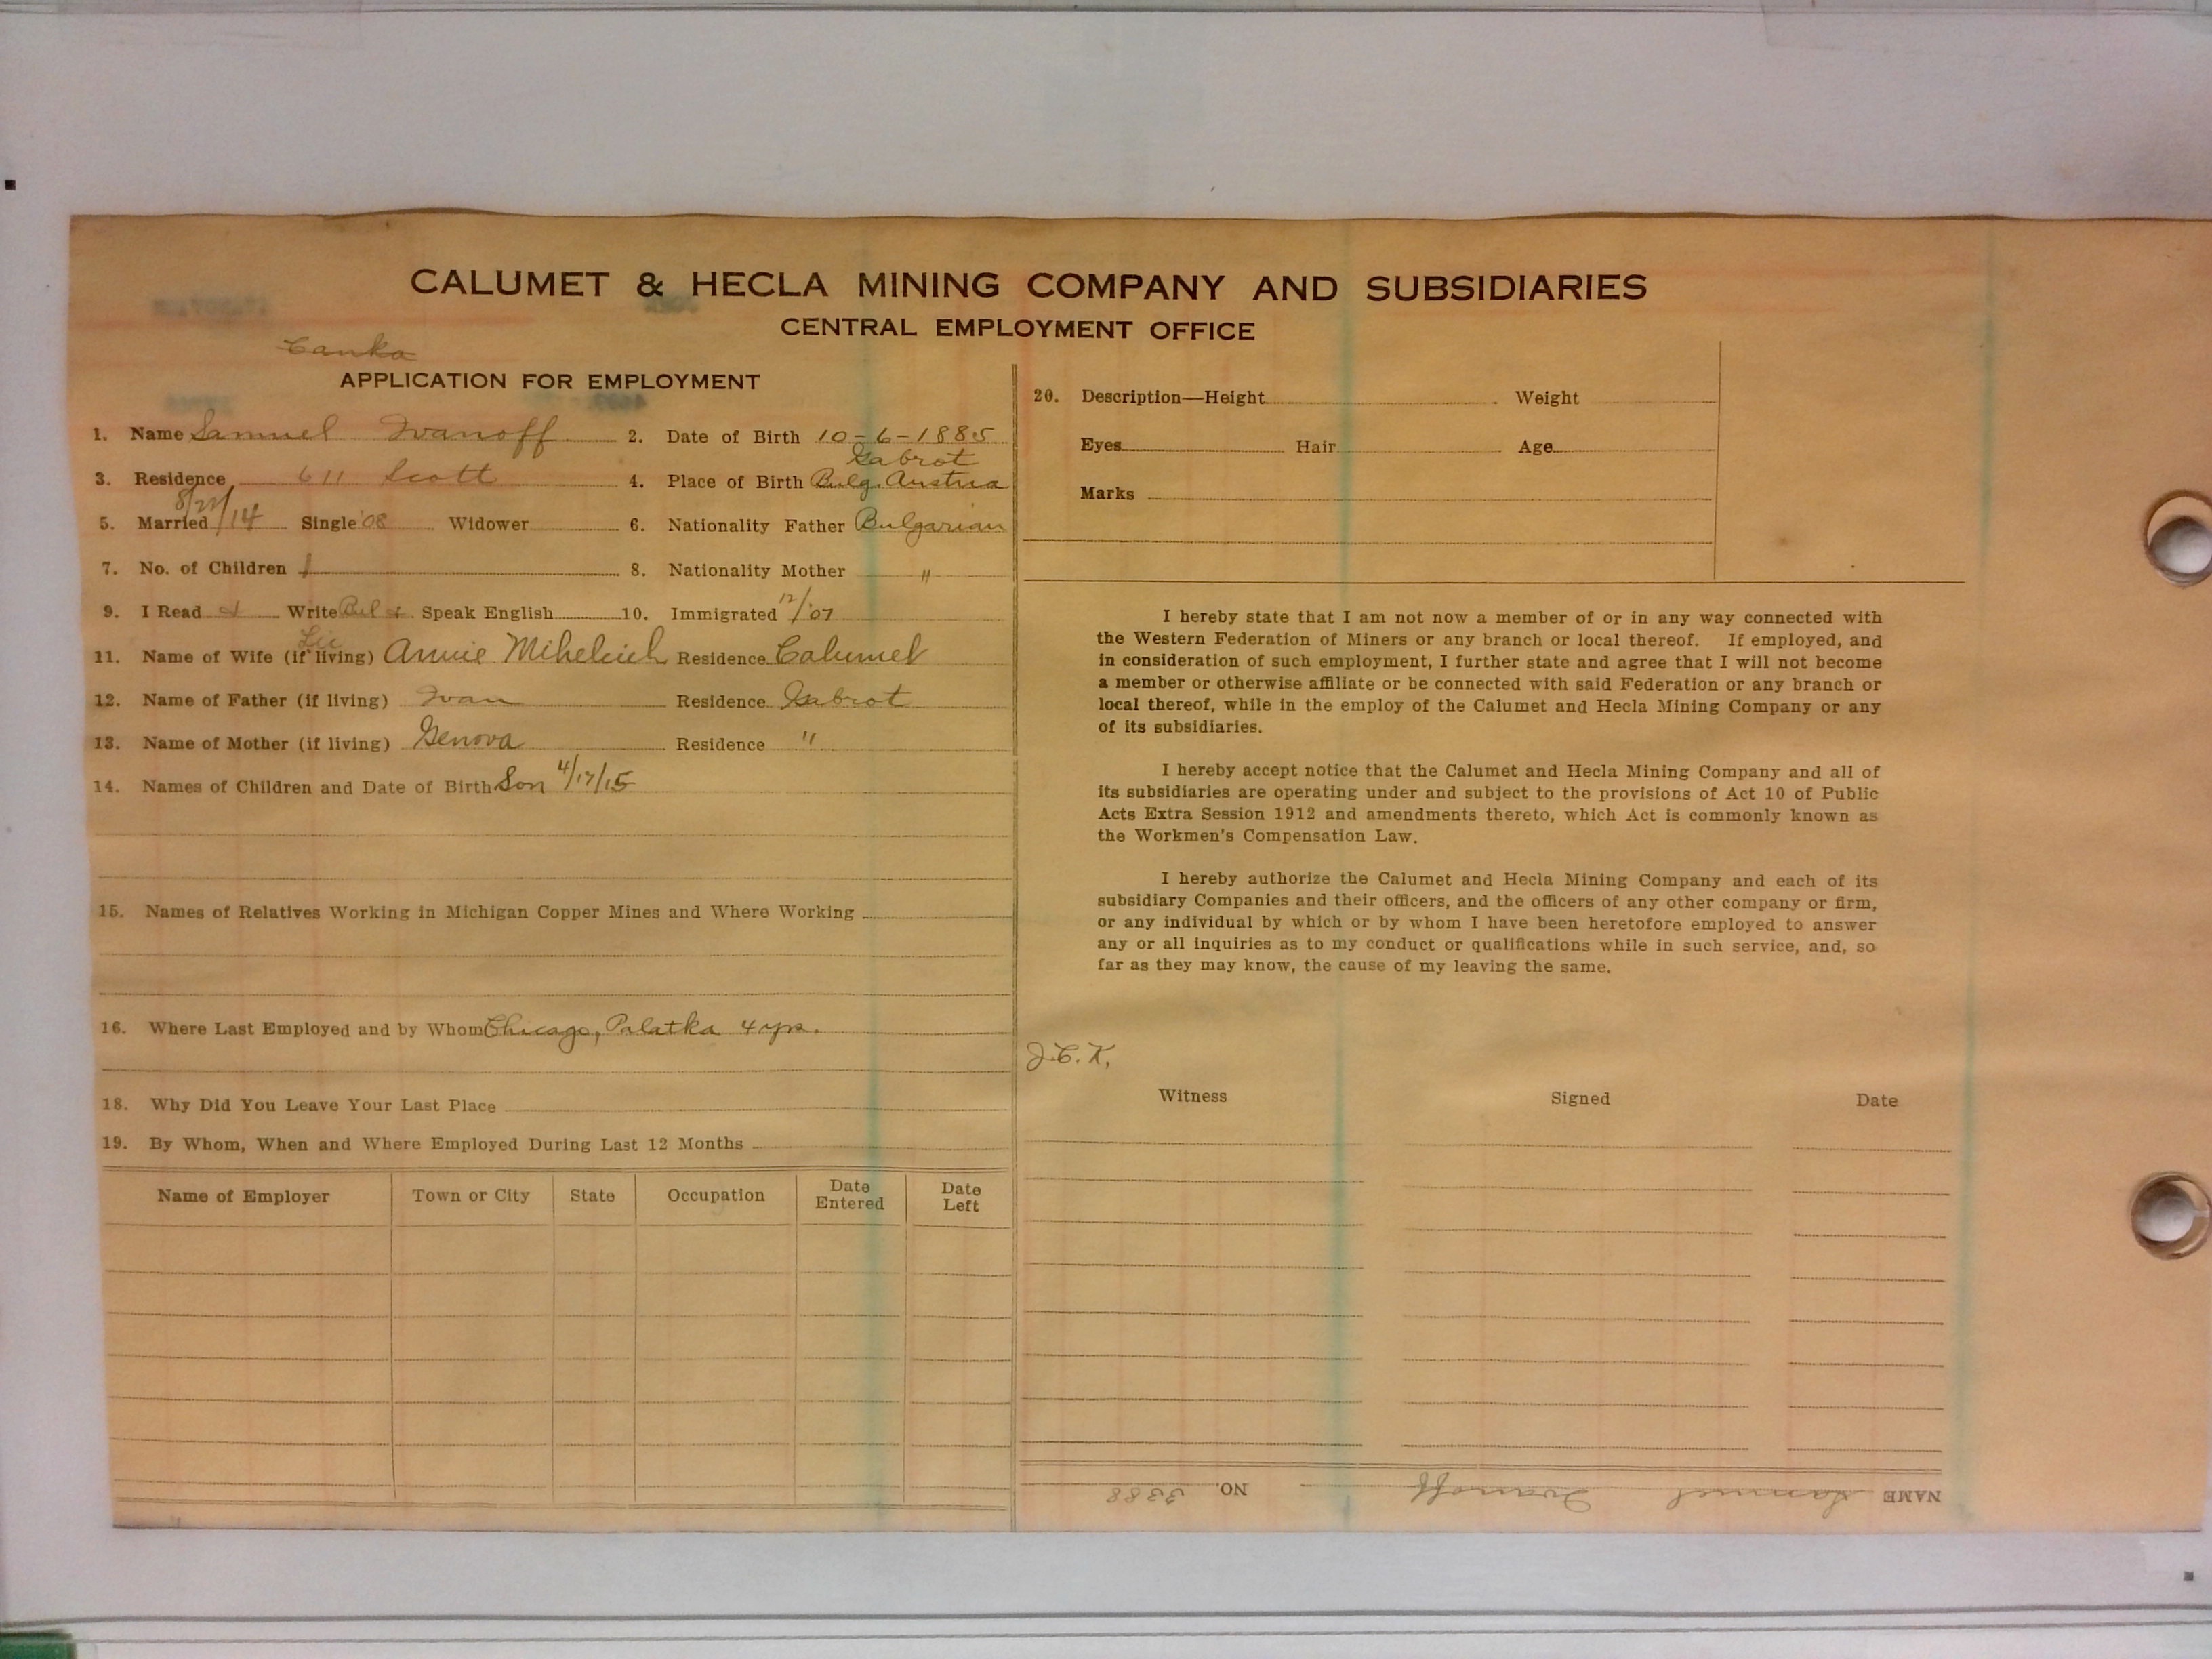 CALUMET & HECLA MINING COMPANY AND SUBSIDIARIES
CENTRAL EMPLOYMENT OFFICE
Canko
APPLICATION FOR EMPLOYMENT
1. Name Samuel Ivanoff 2. Date of Birth 10-6-1885
Gabrot
3. Residence 611 Scott 4. Place of Birth Bulg. Austria
5. Married 8/22/14 Single '08 Widower 6. Nationality Father Bulgarian
7. No. of Children 1 8. Nationality Mother "
9. I Read & Write Bul & Speak English 10. Immigrated 12/'07
11. Name of Wife (if living) Annie Mihelcich Residence Calumet
12. Name of Father (if living) Ivan Residence Gabrot
13. Name of Mother (if living) Genova Residence "
14. Names of Children and Date of Birth Son 4/17/15
15. Names of Relatives Working in Michigan Copper Mines and Where Working
16. Where Last Employed and by Whom Chicago, Palatka 4 yrs.
18. Why Did You Leave Your Last Place
19. By Whom, When and Where Employed During Last 12 Months
Name of Employer Town or City State Occupation Date Entered Date Left
20. Description—Height Weight
Eyes Hair Age
Marks
I hereby state that I am not now a member of or in any way connected with
the Western Federation of Miners or any branch or local thereof. If employed, and
in consideration of such employment, I further state and agree that I will not become
a member or otherwise affiliate or be connected with said Federation or any branch or
local thereof, while in the employ of the Calumet and Hecla Mining Company or any
of its subsidiaries.
I hereby accept notice that the Calumet and Hecla Mining Company and all of
its subsidiaries are operating under and subject to the provisions of Act 10 of Public
Acts Extra Session 1912 and amendments thereto, which Act is commonly known as
the Workmen's Compensation Law.
I hereby authorize the Calumet and Hecla Mining Company and each of its
subsidiary Companies and their officers, and the officers of any other company or firm,
or any individual by which or by whom I have been heretofore employed to answer
any or all inquiries as to my conduct or qualifications while in such service, and, so
far as they may know, the cause of my leaving the same.
J.C.K.
Witness Signed Date
NAME Samuel Ivanoff NO. 3388